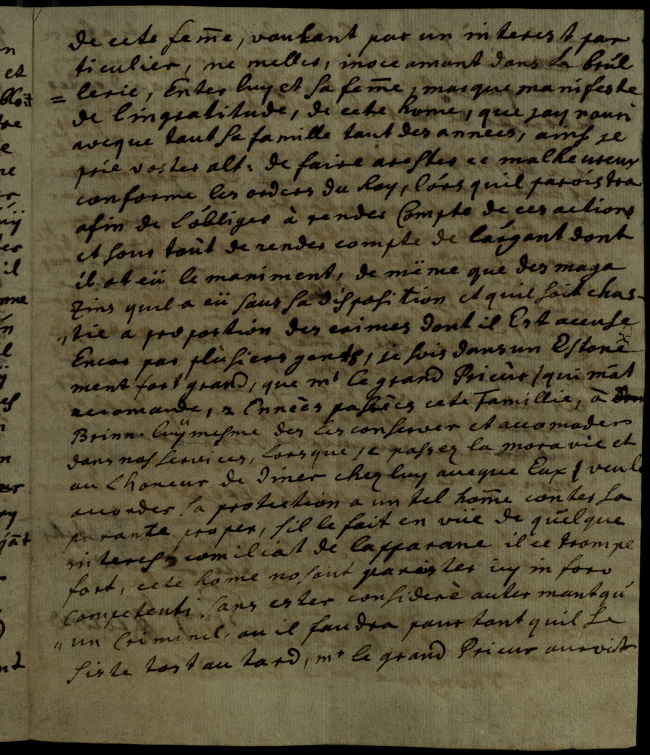 de cete fem̄e, voulant par un interest par
ticulier, ne melles, inoceamant dans la brúl
= lerie, Enter luy et sa fem̄e, marque manifeste
de l'ingratitude, de cete home, que jay nouri
avecque tout sa famille tant des annees, ainsi je
prie voster alt: de faire arester ce malheureux
conforme les orders du Roy, lórs quil paroistra
afin de lobliger à render Compte de ces actions
et sour toút de render compte de largant dont
il at eü le maniment, de mëme que des maga
zins quil a eü sous sa disposition et quil soit chas-
„ tie a proportion des crimes dont il Est accuse
Encor par plusiers gents, je sois dans un Estone
ment fort grand, que mr le grand Prieur / qui m'at
recomande, 2 Ennées passées cete Famillie, à
Brinn luÿ mesme des les conserver et accomoder
dans nos services, lorsque je passez la moravie et
au l'honeur de diner chez luy avecque Eux / veule
accorder sa protection a un tel hom̄e conter sa
parante proper, sil le fait en vüe de quelque
interest comiliat de lapparane il ce trompe
fort, cete home nosant paroister icy in foro
Competenti sans ester consideré auter mant qú
„ un Criminel, ou il faudra pour tant quil se
siste tost au tard, mr le grand Prieur auroit